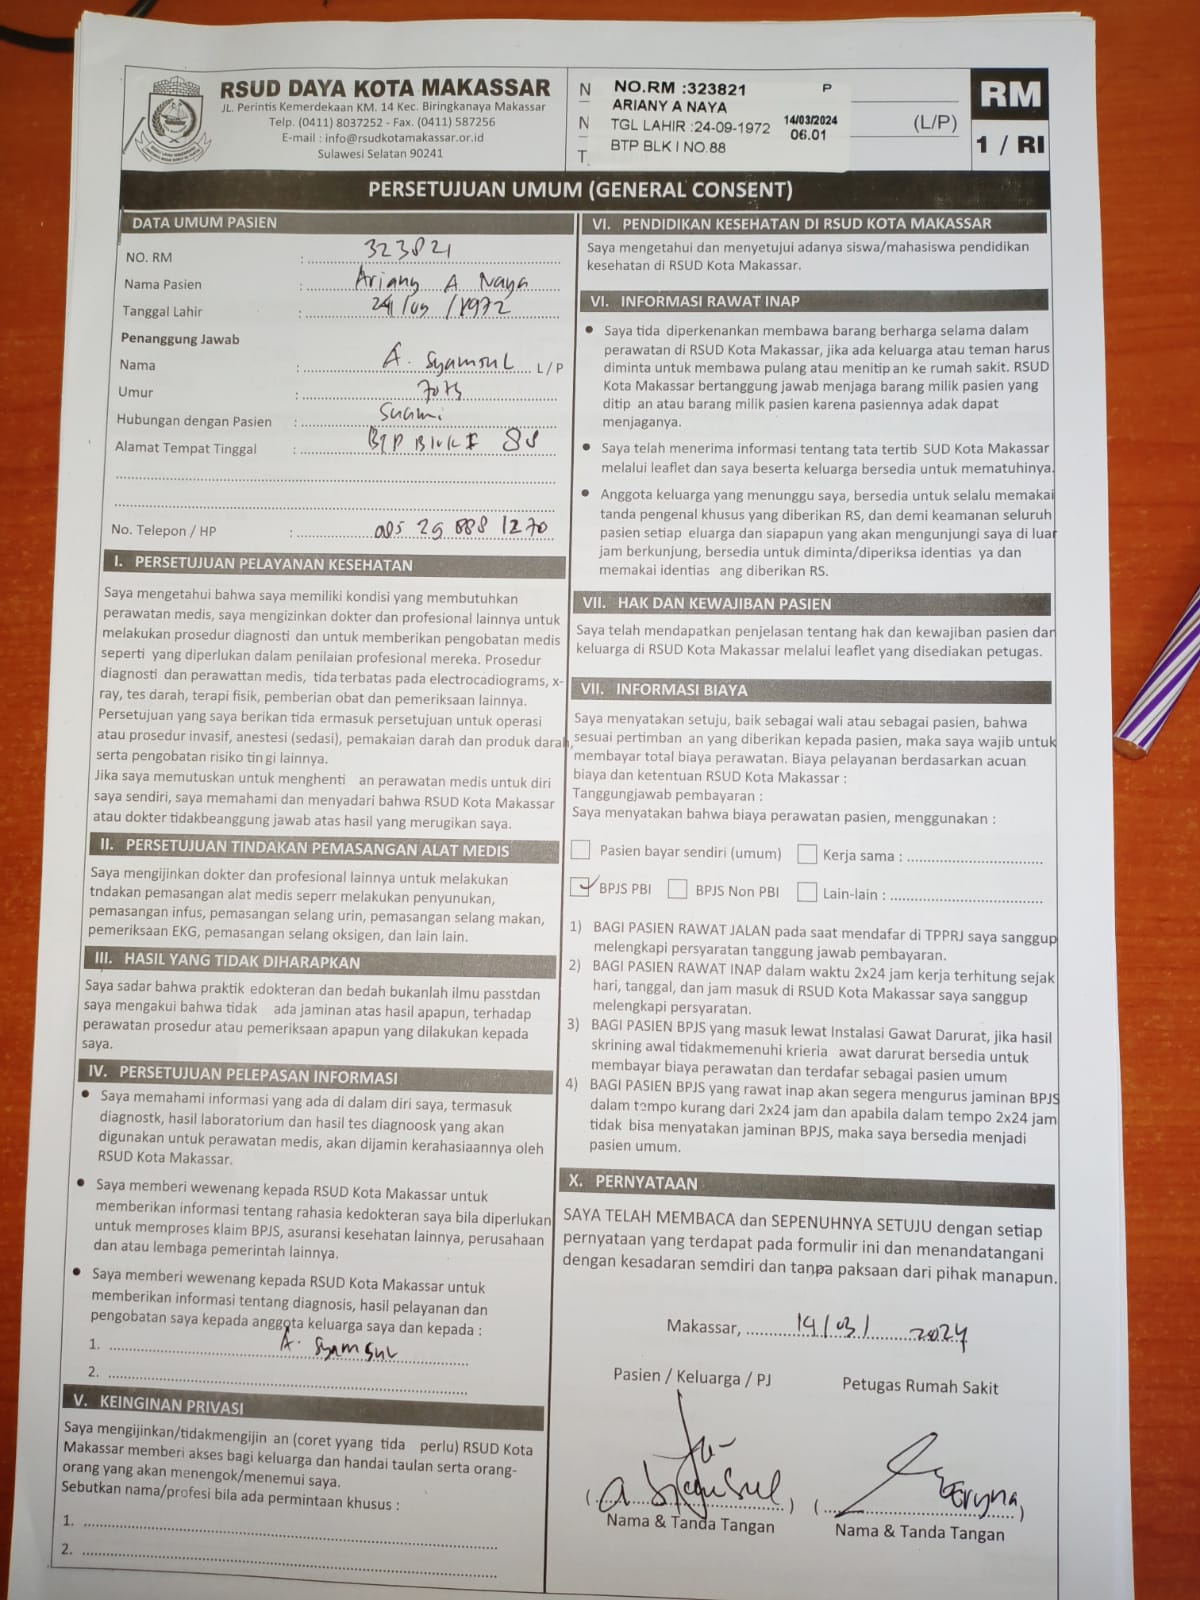 RSUD DAYA KOTA MAKASSAR
JL. Perintis Kemerdekaan KM. 14 Kec. Biringkanaya Makassar
Telp. (0411) 8037252 - Fax. (0411) 587256
E-mail : info@rsudkotamakassar.or.id
Sulawesi Selatan 90241
N
N
T
NO.RM :323821 P
ARIANY A NAYA
TGL LAHIR :24-09-1972 14/03/2024
06.01
BTP BLK I NO.88
(L/P)
RM
1 / RI
PERSETUJUAN UMUM (GENERAL CONSENT)
DATA UMUM PASIEN
NO. RM : 323821
Nama Pasien : Ariany A Naya
Tanggal Lahir : 24/09/1972
Penanggung Jawab
Nama : A. Syamsul L / P
Umur :
Hubungan dengan Pasien : Suami
Alamat Tempat Tinggal : BTP Blok I 88
No. Telepon / HP : 085 29 888 1270
I. PERSETUJUAN PELAYANAN KESEHATAN
Saya mengetahui bahwa saya memiliki kondisi yang membutuhkan
perawatan medis, saya mengizinkan dokter dan profesional lainnya untuk
melakukan prosedur diagnosti dan untuk memberikan pengobatan medis
seperti yang diperlukan dalam penilaian profesional mereka. Prosedur
diagnosti dan perawattan medis, tida terbatas pada electrocadiograms, x-
ray, tes darah, terapi fisik, pemberian obat dan pemeriksaan lainnya.
Persetujuan yang saya berikan tida ermasuk persetujuan untuk operasi
atau prosedur invasif, anestesi (sedasi), pemakaian darah dan produk darah,
serta pengobatan risiko tin gi lainnya.
Jika saya memutuskan untuk menghenti an perawatan medis untuk diri
saya sendiri, saya memahami dan menyadari bahwa RSUD Kota Makassar
atau dokter tidakbeanggung jawab atas hasil yang merugikan saya.
II. PERSETUJUAN TINDAKAN PEMASANGAN ALAT MEDIS
Saya mengijinkan dokter dan profesional lainnya untuk melakukan
tndakan pemasangan alat medis seperr melakukan penyunukan,
pemasangan infus, pemasangan selang urin, pemasangan selang makan,
pemeriksaan EKG, pemasangan selang oksigen, dan lain lain.
III. HASIL YANG TIDAK DIHARAPKAN
Saya sadar bahwa praktik edokteran dan bedah bukanlah ilmu passtdan
saya mengakui bahwa tidak ada jaminan atas hasil apapun, terhadap
perawatan prosedur atau pemeriksaan apapun yang dilakukan kepada
saya.
IV. PERSETUJUAN PELEPASAN INFORMASI
• Saya memahami informasi yang ada di dalam diri saya, termasuk
diagnostk, hasil laboratorium dan hasil tes diagnoosk yang akan
digunakan untuk perawatan medis, akan dijamin kerahasiaannya oleh
RSUD Kota Makassar.
• Saya memberi wewenang kepada RSUD Kota Makassar untuk
memberikan informasi tentang rahasia kedokteran saya bila diperlukan
untuk memproses klaim BPJS, asuransi kesehatan lainnya, perusahaan
dan atau lembaga pemerintah lainnya.
• Saya memberi wewenang kepada RSUD Kota Makassar untuk
memberikan informasi tentang diagnosis, hasil pelayanan dan
pengobatan saya kepada anggota keluarga saya dan kepada :
1. A. Syamsul
2.
V. KEINGINAN PRIVASI
Saya mengijinkan/tidakmengijin an (coret yyang tida perlu) RSUD Kota
Makassar memberi akses bagi keluarga dan handai taulan serta orang-
orang yang akan menengok/menemui saya.
Sebutkan nama/profesi bila ada permintaan khusus :
1.
2.
VI. PENDIDIKAN KESEHATAN DI RSUD KOTA MAKASSAR
Saya mengetahui dan menyetujui adanya siswa/mahasiswa pendidikan
kesehatan di RSUD Kota Makassar.
VI. INFORMASI RAWAT INAP
• Saya tida diperkenankan membawa barang berharga selama dalam
perawatan di RSUD Kota Makassar, jika ada keluarga atau teman harus
diminta untuk membawa pulang atau menitip an ke rumah sakit. RSUD
Kota Makassar bertanggung jawab menjaga barang milik pasien yang
ditip an atau barang milik pasien karena pasiennya adak dapat
menjaganya.
• Saya telah menerima informasi tentang tata tertib SUD Kota Makassar
melalui leaflet dan saya beserta keluarga bersedia untuk mematuhinya.
• Anggota keluarga yang menunggu saya, bersedia untuk selalu memakai
tanda pengenal khusus yang diberikan RS, dan demi keamanan seluruh
pasien setiap eluarga dan siapapun yang akan mengunjungi saya di luar
jam berkunjung, bersedia untuk diminta/diperiksa identias ya dan
memakai identias ang diberikan RS.
VII. HAK DAN KEWAJIBAN PASIEN
Saya telah mendapatkan penjelasan tentang hak dan kewajiban pasien dan
keluarga di RSUD Kota Makassar melalui leaflet yang disediakan petugas.
VII. INFORMASI BIAYA
Saya menyatakan setuju, baik sebagai wali atau sebagai pasien, bahwa
sesuai pertimban an yang diberikan kepada pasien, maka saya wajib untuk
membayar total biaya perawatan. Biaya pelayanan berdasarkan acuan
biaya dan ketentuan RSUD Kota Makassar :
Tanggungjawab pembayaran :
Saya menyatakan bahwa biaya perawatan pasien, menggunakan :
Pasien bayar sendiri (umum) Kerja sama :
BPJS PBI BPJS Non PBI Lain-lain :
1) BAGI PASIEN RAWAT JALAN pada saat mendafar di TPPRJ saya sanggup
melengkapi persyaratan tanggung jawab pembayaran.
2) BAGI PASIEN RAWAT INAP dalam waktu 2x24 jam kerja terhitung sejak
hari, tanggal, dan jam masuk di RSUD Kota Makassar saya sanggup
melengkapi persyaratan.
3) BAGI PASIEN BPJS yang masuk lewat Instalasi Gawat Darurat, jika hasil
skrining awal tidakmemenuhi krieria awat darurat bersedia untuk
membayar biaya perawatan dan terdafar sebagai pasien umum
4) BAGI PASIEN BPJS yang rawat inap akan segera mengurus jaminan BPJS
dalam tempo kurang dari 2x24 jam dan apabila dalam tempo 2x24 jam
tidak bisa menyatakan jaminan BPJS, maka saya bersedia menjadi
pasien umum.
X. PERNYATAAN
SAYA TELAH MEMBACA dan SEPENUHNYA SETUJU dengan setiap
pernyataan yang terdapat pada formulir ini dan menandatangani
dengan kesadaran semdiri dan tanpa paksaan dari pihak manapun.
Makassar, 14/03/2024
Pasien / Keluarga / PJ Petugas Rumah Sakit
(a Syamsul) (Eryna)
Nama & Tanda Tangan Nama & Tanda Tangan